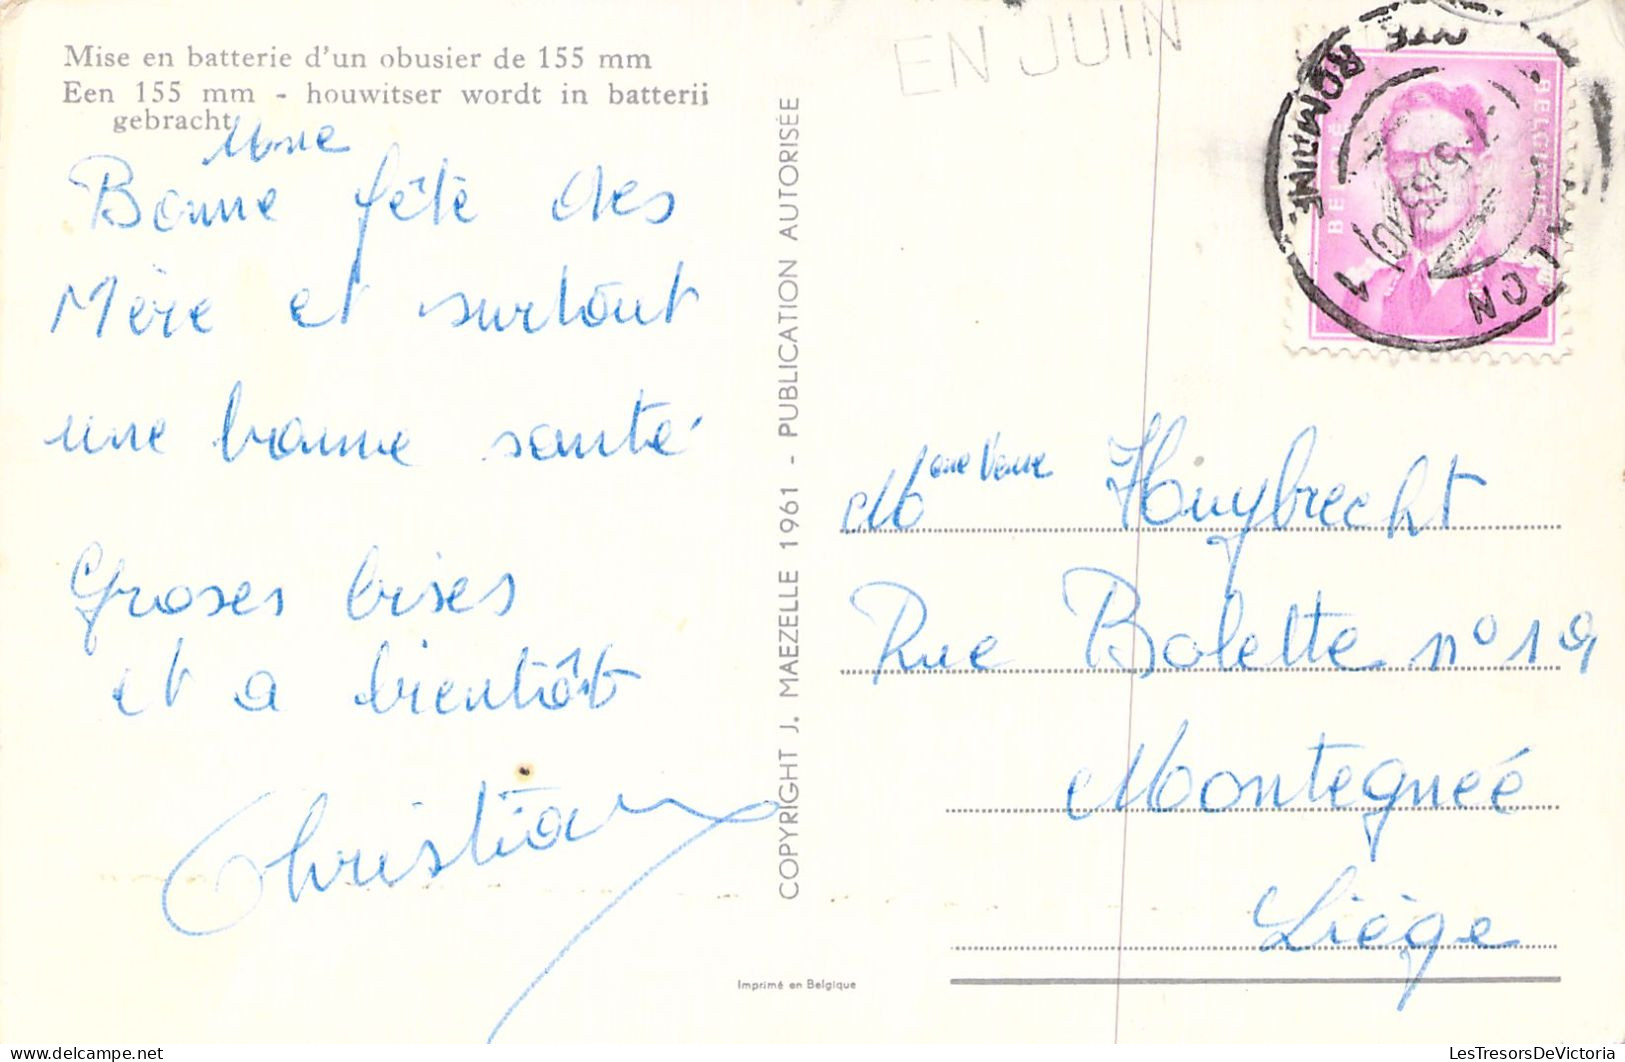 Mise en batterie d'un obusier de 155 mm
Een 155 mm - houwitser wordt in batterij
gebracht
Une
Bonne fête des
Mère et surtout
une bonne santé
Groses bises
et a bientôt
Christian
COPYRIGHT J. MAEZELLE 1961 - PUBLICATION AUTORISÉE
Imprimé en Belgique
EN JUIN
BELGIË
BELGIQUE
ROMAINE
1
Huybrecht
Rue Bolette n° 19
Montegnéé
Liège
LesTresorsDeVictoria
LesTresorsDeVictoria.com